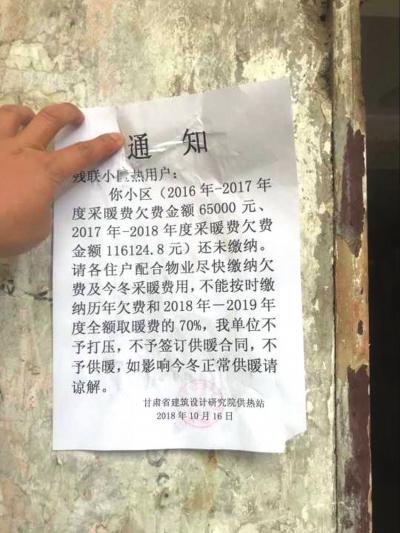 通 知
残联小区热用户：
你小区（2016年-2017年
度采暖费欠费金额65000元、
2017年-2018年度采暖费欠费
金额116124.8元）还未缴纳。
请各住户配合物业尽快缴纳欠
费及今冬采暖费用，不能按时缴
纳历年欠费和2018年—2019年
度全额取暖费的70%，我单位不
予打压，不予签订供暖合同，不
予供暖，如影响今冬正常供暖请
谅解。
甘肃省建筑设计研究院供热站
2018年10月16日